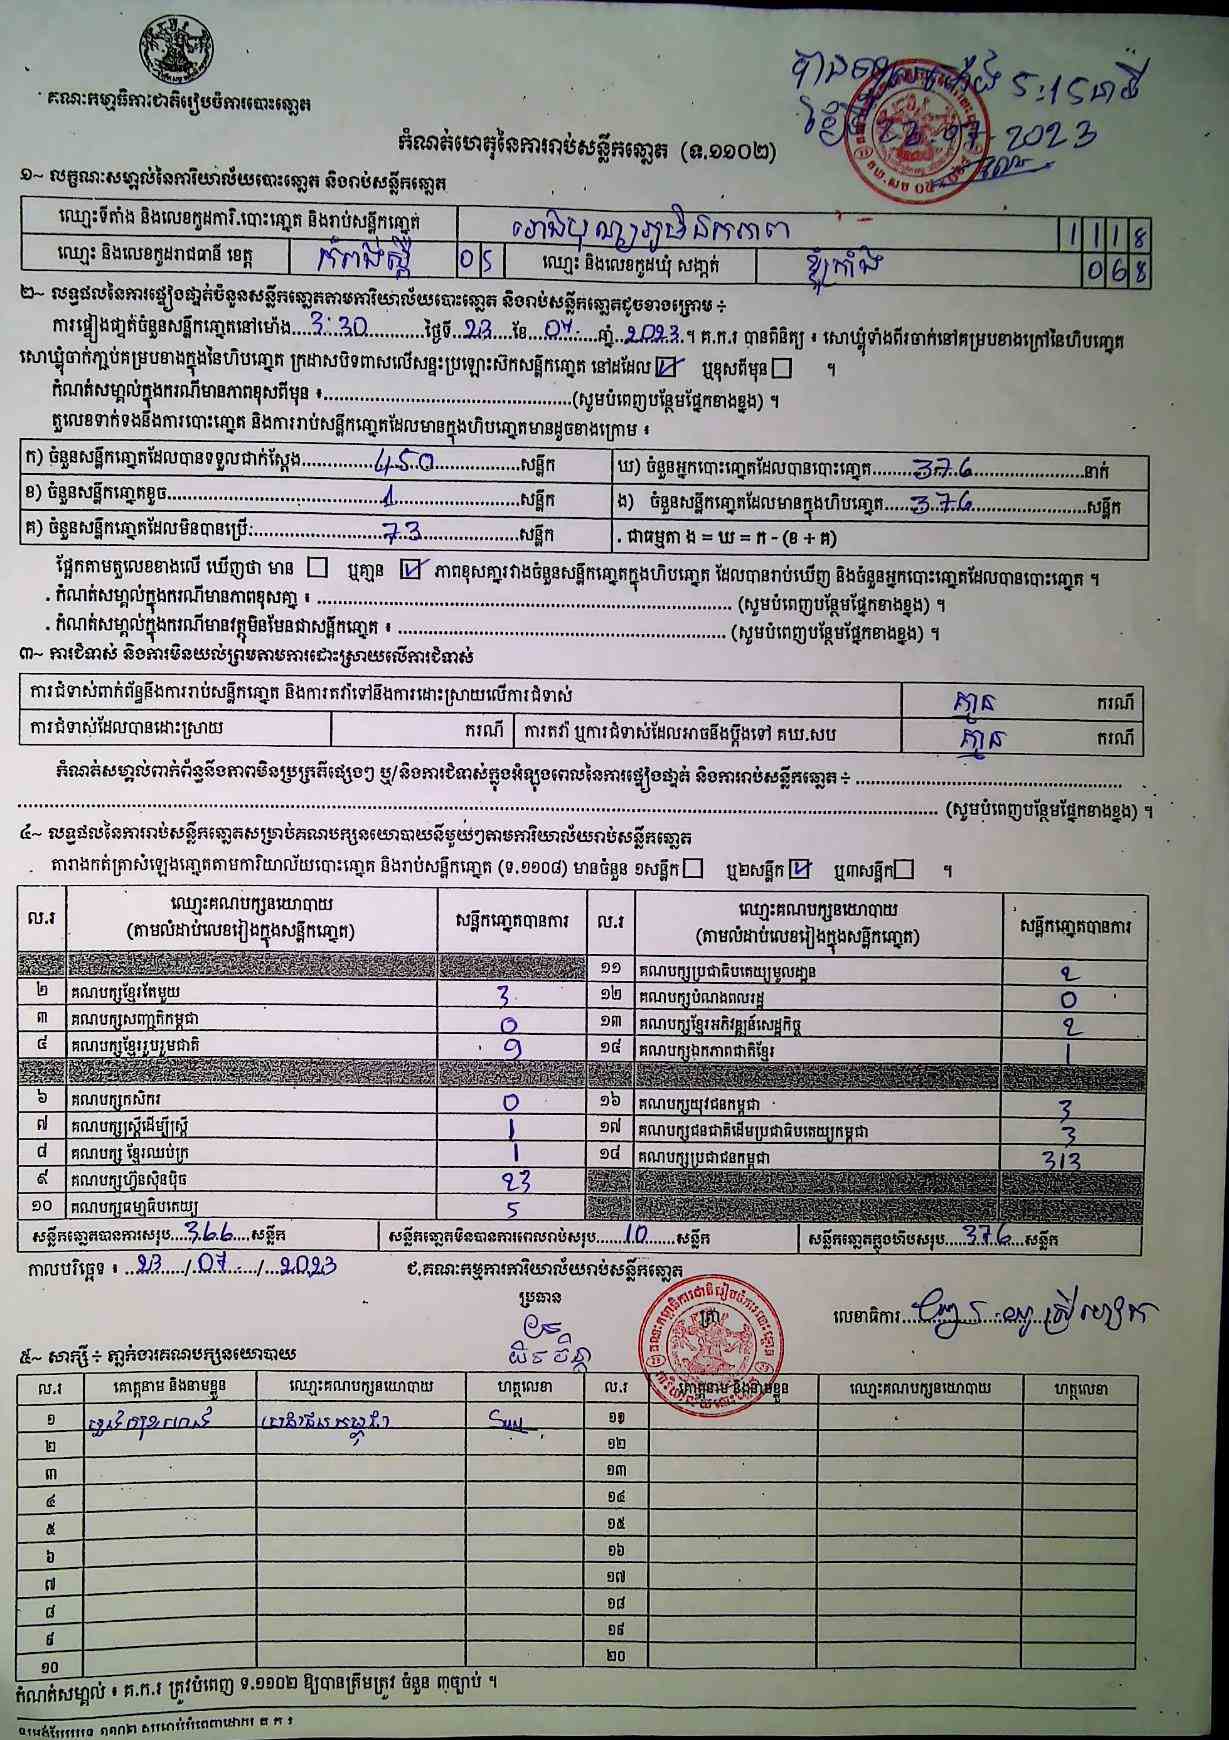 គណៈកម្មាធិការជាតិរៀបចំការបោះឆ្នោត
5:15នាទី
23 . 07 . 2023
កំណត់ហេតុនៃការរាប់សន្លឹកឆ្នោត (ទ.១១០២)
១~ លក្ខណៈសម្គាល់នៃការិយាល័យបោះឆ្នោត និងរាប់សន្លឹកឆ្នោត
ឈ្មោះទីតាំង និងលេខកូដការិ.បោះឆ្នោត និងរាប់សន្លឹកឆ្នោត 1118
ឈ្មោះ និងលេខកូដរាជធានី ខេត្ត កំពង់ស្ពឺ 05 ឈ្មោះ និងលេខកូដឃុំ សង្កាត់ 068
២~ លទ្ធផលនៃការផ្ទៀងផ្ទាត់ចំនួនសន្លឹកឆ្នោតតាមការិយាល័យបោះឆ្នោត និងរាប់សន្លឹកឆ្នោតដូចខាងក្រោម ÷
ការផ្ទៀងផ្ទាត់ចំនួនសន្លឹកឆ្នោតនៅម៉ោង 3:30 ថ្ងៃទី 23 ខែ 07 ឆ្នាំ 2023 ។ គ.ក.រ បានពិនិត្យ ៖ សោឃ្លុំទាំងពីរចាក់នៅគម្របខាងក្រៅនៃហិបឆ្នោត
សោឃ្លុំចាក់ភ្ជាប់គម្របខាងក្នុងនៃហិបឆ្នោត ក្រដាសបិទពាសលើសន្ទះប្រឡោះស៊កសន្លឹកឆ្នោត នៅដដែល ☑ ឬខុសពីមុន ☐ ។
កំណត់សម្គាល់ក្នុងករណីមានភាពខុសពីមុន ៖ (សូមបំពេញបន្ថែមផ្នែកខាងខ្នង) ។
តួលេខទាក់ទងនឹងការបោះឆ្នោត និងការរាប់សន្លឹកឆ្នោតដែលមានក្នុងហិបឆ្នោតមានដូចខាងក្រោម ៖
ក) ចំនួនសន្លឹកឆ្នោតដែលបានទទួលជាក់ស្តែង 450 សន្លឹក ឃ) ចំនួនអ្នកបោះឆ្នោតដែលបានបោះឆ្នោត 376 នាក់
ខ) ចំនួនសន្លឹកឆ្នោតខូច 1 សន្លឹក ង) ចំនួនសន្លឹកឆ្នោតដែលមានក្នុងហិបឆ្នោត 376 សន្លឹក
គ) ចំនួនសន្លឹកឆ្នោតដែលមិនបានប្រើ: 73 សន្លឹក . ជាធម្មតា ង = ឃ = ក - (ខ + គ)
ផ្អែកតាមតួលេខខាងលើ ឃើញថា មាន ☐ ឬគ្មាន ☑ ភាពខុសគ្នារវាងចំនួនសន្លឹកឆ្នោតក្នុងហិបឆ្នោត ដែលបានរាប់ឃើញ និងចំនួនអ្នកបោះឆ្នោតដែលបានបោះឆ្នោត ។
. កំណត់សម្គាល់ក្នុងករណីមានភាពខុសគ្នា ៖ (សូមបំពេញបន្ថែមផ្នែកខាងខ្នង) ។
. កំណត់សម្គាល់ក្នុងករណីមានវត្ថុមិនមែនជាសន្លឹកឆ្នោត ៖ (សូមបំពេញបន្ថែមផ្នែកខាងខ្នង) ។
៣~ ការជំទាស់ និងការមិនយល់ព្រមតាមការដោះស្រាយលើការជំទាស់
ការជំទាស់ពាក់ព័ន្ធនឹងការរាប់សន្លឹកឆ្នោត និងការតវ៉ាទៅនឹងការដោះស្រាយលើការជំទាស់ គ្មាន ករណី
ការជំទាស់ដែលបានដោះស្រាយ ករណី ការតវ៉ា ឬការជំទាស់ដែលអាចនឹងប្តឹងទៅ គឃ.សប គ្មាន ករណី
កំណត់សម្គាល់ពាក់ព័ន្ធនឹងភាពមិនប្រក្រតីផ្សេងៗ ឬ/និងការជំទាស់ក្នុងអំឡុងពេលនៃការផ្ទៀងផ្ទាត់ និងការរាប់សន្លឹកឆ្នោត ÷
(សូមបំពេញបន្ថែមផ្នែកខាងខ្នង) ។
៤~ លទ្ធផលនៃការរាប់សន្លឹកឆ្នោតសម្រាប់គណបក្សនយោបាយនីមួយៗតាមការិយាល័យរាប់សន្លឹកឆ្នោត
តារាងកត់ត្រាសំឡេងឆ្នោតតាមការិយាល័យបោះឆ្នោត និងរាប់សន្លឹកឆ្នោត (ទ.១១០៨) មានចំនួន ១សន្លឹក ☐ ឬ២សន្លឹក ☑ ឬ៣សន្លឹក ☐ ។
ល.រ ឈ្មោះគណបក្សនយោបាយ (តាមលំដាប់លេខរៀងក្នុងសន្លឹកឆ្នោត) សន្លឹកឆ្នោតបានការ ល.រ ឈ្មោះគណបក្សនយោបាយ (តាមលំដាប់លេខរៀងក្នុងសន្លឹកឆ្នោត) សន្លឹកឆ្នោតបានការ
១១ គណបក្សប្រជាធិបតេយ្យមូលដ្ឋាន 2
២ គណបក្សខ្មែរតែមួយ 3 ១២ គណបក្សបំណងពលរដ្ឋ 0
៣ គណបក្សសញ្ជាតិកម្ពុជា 0 ១៣ គណបក្សខ្មែរអភិវឌ្ឍន៍សេដ្ឋកិច្ច 2
៤ គណបក្សខ្មែររួបរួមជាតិ 9 ១៤ គណបក្សឯកភាពជាតិខ្មែរ 1
៦ គណបក្សកសិករ 0 ១៦ គណបក្សយុវជនកម្ពុជា 3
៧ គណបក្សស្ត្រីដើម្បីស្ត្រី 1 ១៧ គណបក្សជនជាតិដើមប្រជាធិបតេយ្យកម្ពុជា 3
៨ គណបក្ស ខ្មែរឈប់ក្រ 1 ១៨ គណបក្សប្រជាជនកម្ពុជា 313
៩ គណបក្សហ៊្វុនស៊ិនប៉ិច 23
១០ គណបក្សធម្មាធិបតេយ្យ 5
សន្លឹកឆ្នោតបានការសរុប 366 សន្លឹក សន្លឹកឆ្នោតមិនបានការពេលរាប់សរុប 10 សន្លឹក សន្លឹកឆ្នោតក្នុងហិបសរុប 376 សន្លឹក
កាលបរិច្ឆេទ ៖ 23 / 07 / 2023 ជ.គណៈកម្មការការិយាល័យរាប់សន្លឹកឆ្នោត
ប្រធាន ត្រា លេខាធិការ
៥~ សាក្សី ÷ ភ្នាក់ងារគណបក្សនយោបាយ
ល.រ គោត្តនាម និងនាមខ្លួន ឈ្មោះគណបក្សនយោបាយ ហត្ថលេខា ល.រ គោត្តនាម និងនាមខ្លួន ឈ្មោះគណបក្សនយោបាយ ហត្ថលេខា
១ ប្រជាជនកម្ពុជា ១១
២ ១២
៣ ១៣
៤ ១៤
៥ ១៥
៦ ១៦
៧ ១៧
៨ ១៨
៩ ១៩
១០ ២០
កំណត់សម្គាល់ ៖ គ.ក.រ ត្រូវបំពេញ ទ.១១០២ ឱ្យបានត្រឹមត្រូវ ចំនួន ៣ច្បាប់ ។